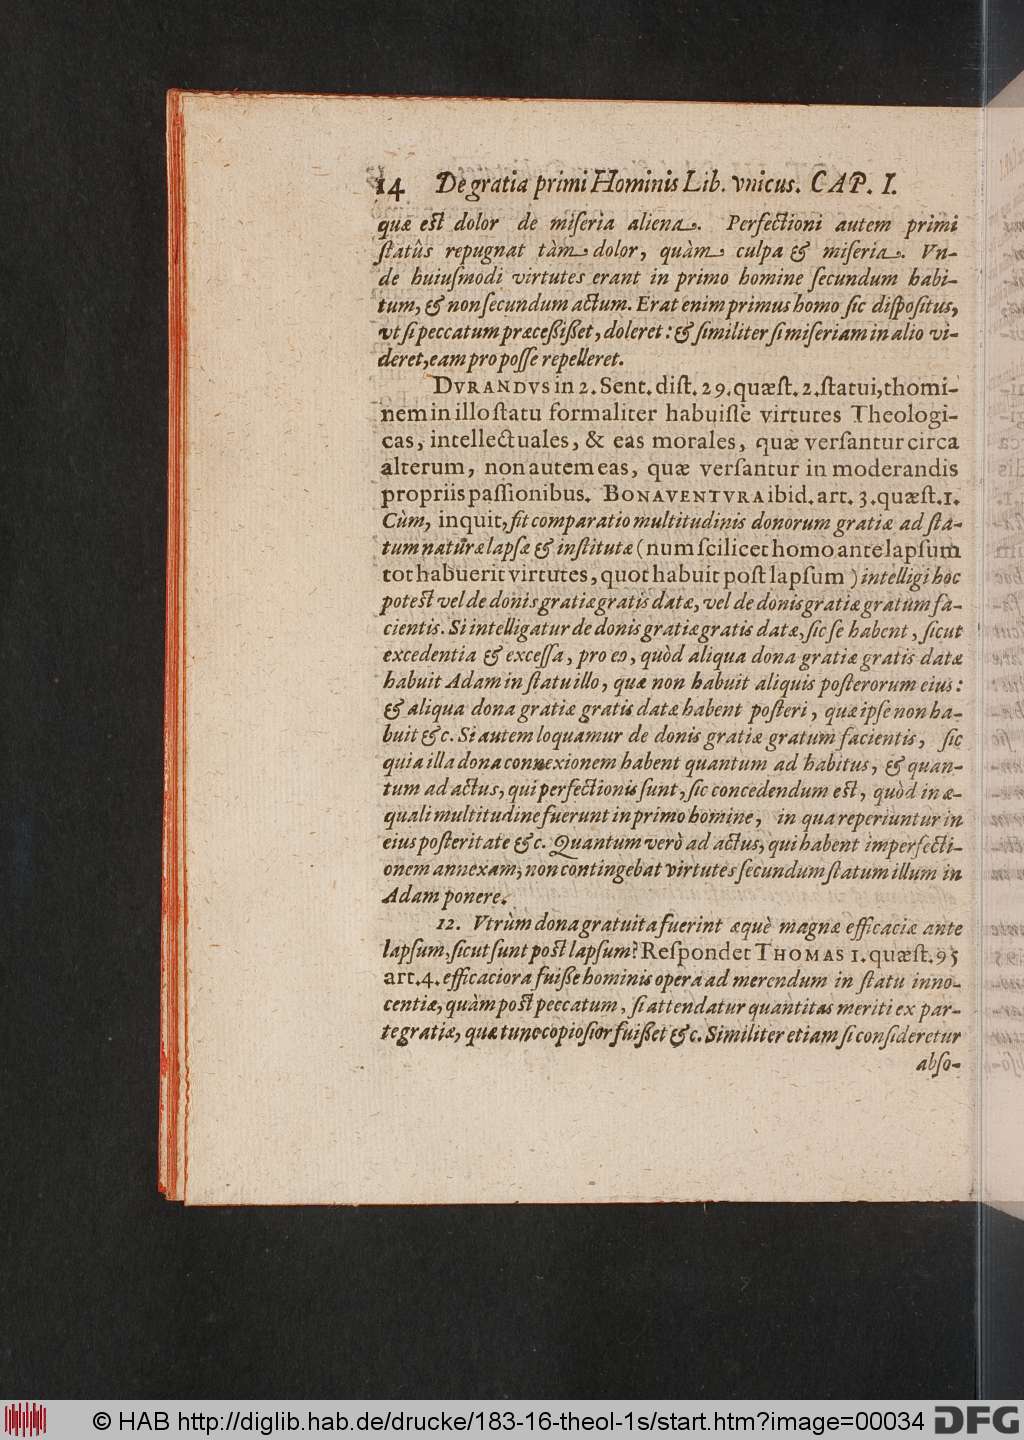 14 De gratia primi Hominis Lib. vnicus. CAP. I.
quæ est dolor de miseria aliena. Perfectioni autem primi
ſtatûs repugnat tàm dolor, quàm culpa & miſeria. Vn-
de huiuſmodi virtutes erant in primo homine ſecundum habi-
tum, & non ſecundum actum. Erat enim primus homo ſic diſpoſitus,
vt ſi peccatum præceßißet, doleret: & ſimiliter ſi miſeriam in alio vi-
deret, eam pro poſſe repelleret.
DVRANDVS in 2. Sent. diſt. 29. quæſt. 2. ſtatuit, homi-
nem in illo ſtatu formaliter habuiſſe virtutes Theologi-
cas, intellectuales, & eas morales, quæ verſantur circa
alterum, non autem eas, quæ verſantur in moderandis
propriis paſſionibus. BONAVENTVRA ibid. art. 3. quæſt. 1.
Cùm, inquit, fit comparatio multitudinis donorum gratiæ ad ſta-
tum naturæ lapſæ & inſtitutæ (num ſcilicet homo ante lapſum
tot habuerit virtutes, quot habuit poſt lapſum ) intelligi hoc
poteſt vel de donis gratiæ gratis datæ, vel de donis gratiæ gratum fa-
cientis. Si intelligatur de donis gratiæ gratis datæ, ſic ſe habent, ſicut
excedentia & exceſſa, pro eo, quòd aliqua dona gratiæ gratis datæ
habuit Adam in ſtatu illo, quæ non habuit aliquis poſterorum eius:
& aliqua dona gratiæ gratis datæ habent poſteri, quæ ipſe non ha-
buit &c. Si autem loquamur de donis gratiæ gratum facientis, ſic
quia illa dona connexionem habent quantum ad habitus, & quan-
tum ad actus, qui perfectionis ſunt, ſic concedendum eſt, quòd in æ-
quali multitudine fuerunt in primo homine, in qua reperiuntur in
eius poſteritate &c. Quantum verò ad actus, qui habent imperfecti-
onem annexam, non contingebat virtutes ſecundum ſtatum illum in
Adam ponere.
12. Vtrùm dona gratuita fuerint æquè magnæ efficaciæ ante
lapſum, ſicut ſunt poſt lapſum? Reſpondet THOMAS 1. quæſt. 95
art. 4. efficaciora fuiße hominis opera ad merendum in ſtatu inno-
centiæ, quàm poſt peccatum, ſi attendatur quantitas meriti ex par-
te gratiæ, quæ tunc copioſior fuißet &c. Similiter etiam ſi conſideretur
abſo-
© HAB http://diglib.hab.de/drucke/183-16-theol-1s/start.htm?image=00034 DFG